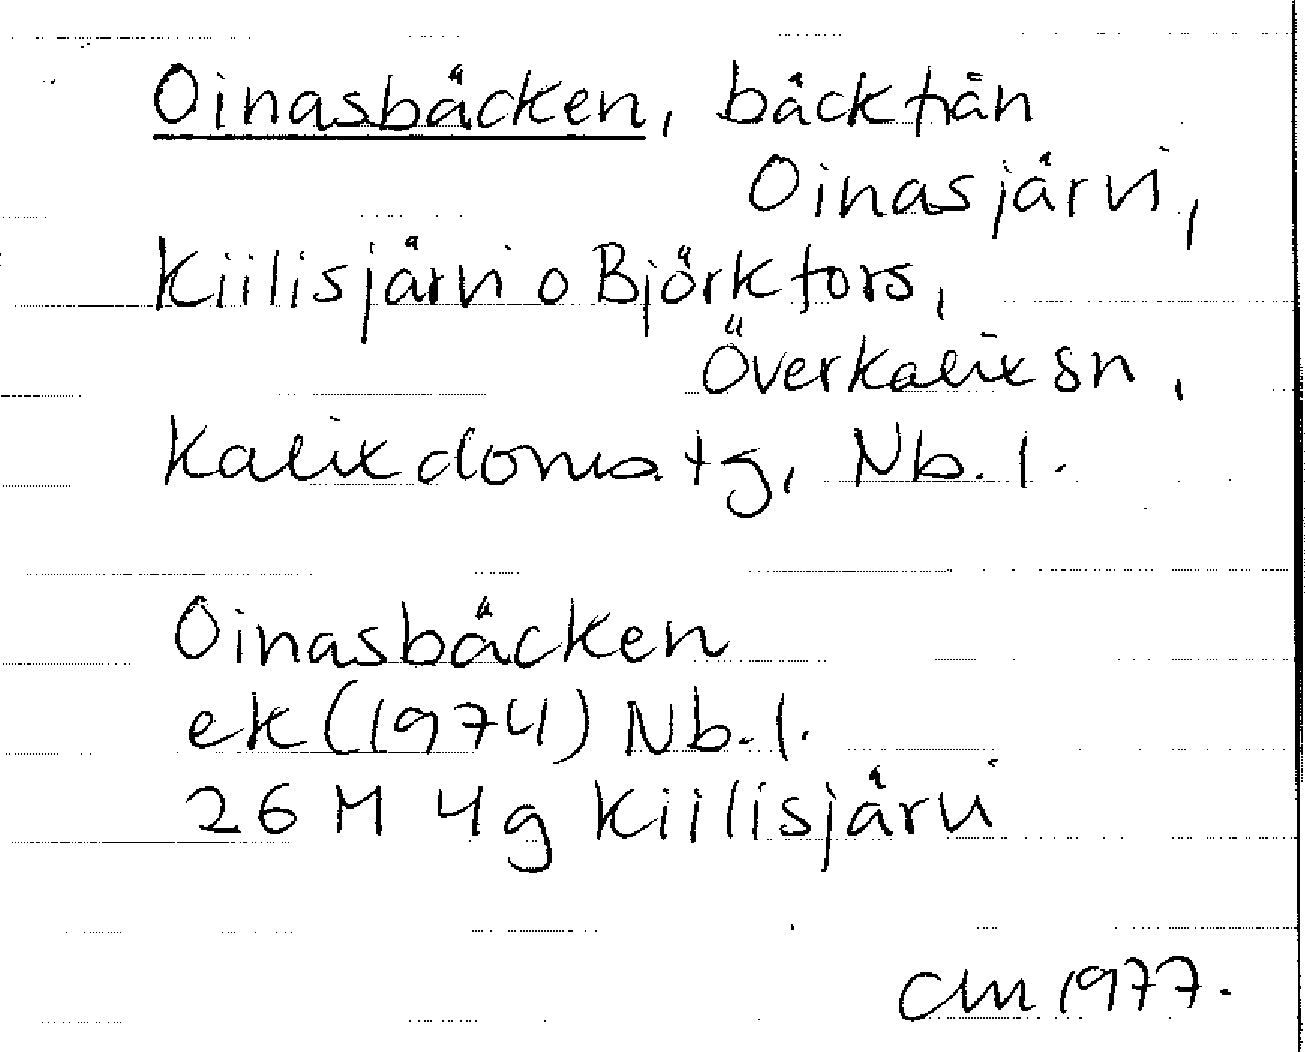 Oinasbäcken, bäck från
Oinasjärvi,
Kiilisjärvi o Björkfors,
Överkalix sn,
Kalix doms. tg, Nb. l.
Oinasbäcken
ek (1974) Nb. l.
26 M 4g Kiilisjärvi
CM 1977.